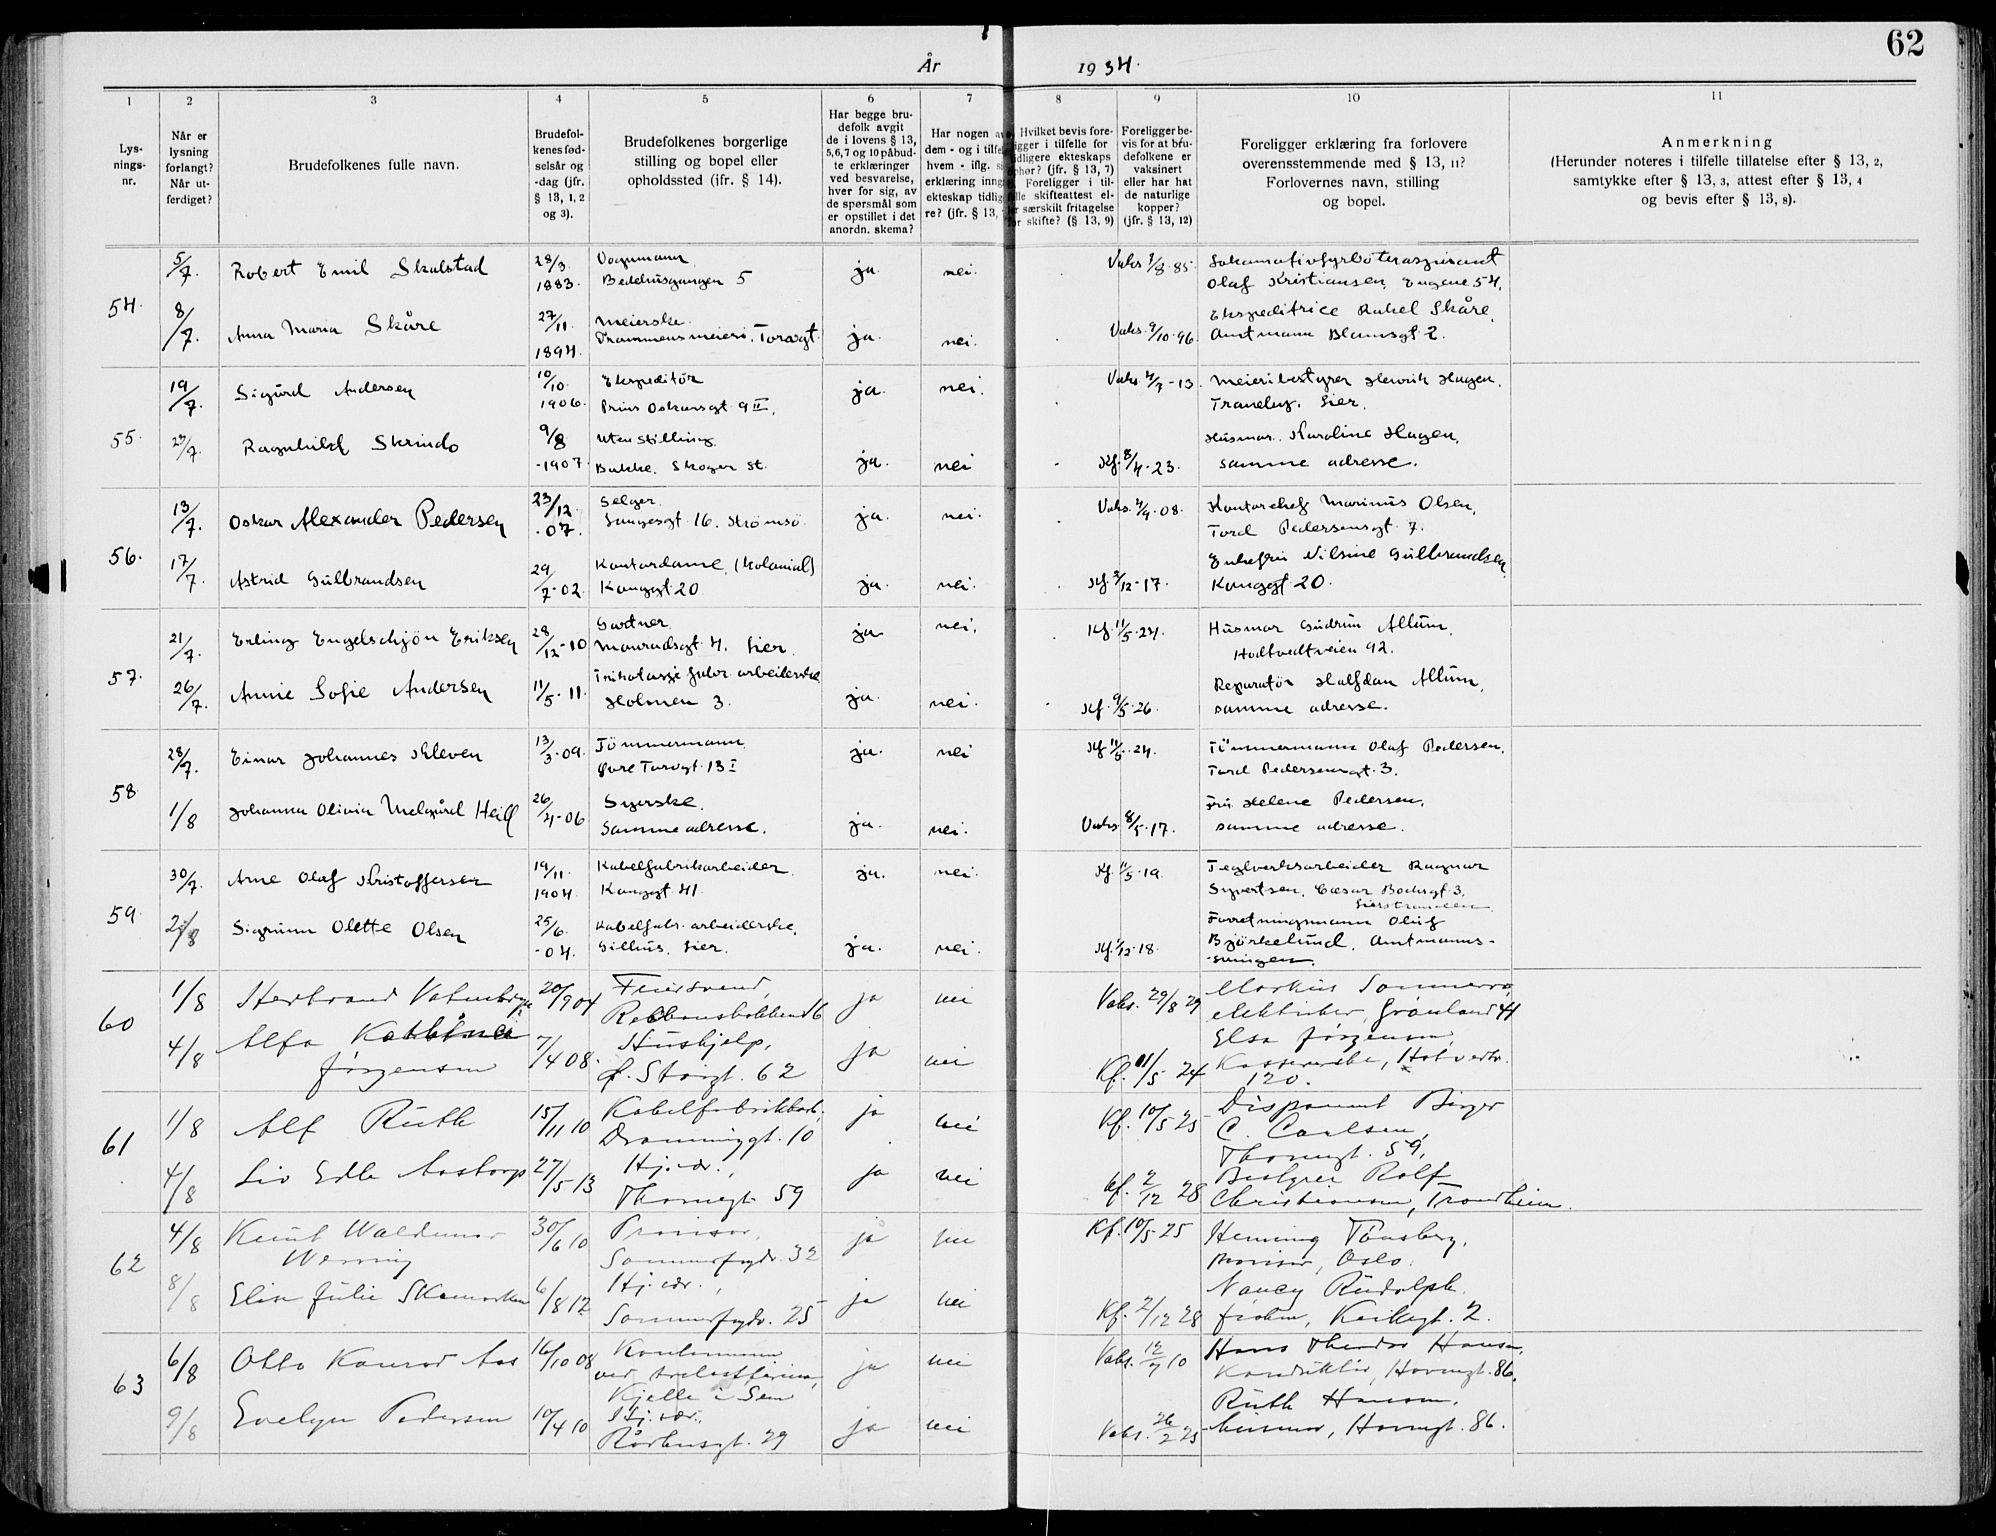 62
År 1934.
1 2 3 4 5 6 7 8 9 10 11
Lys-
nings-
nr.
Når er
lysning
forlangt?
Når ut-
ferdiget?
Brudefolkenes fulle navn.
Brudefol-
kenes fød-
selsår og
-dag (jfr.
§ 13, 1, 2
og 3).
Brudefolkenes borgerlige
stilling og bopel eller
opholdssted (ifr. § 14).
Har begge bru-
defolk avgit
de i lovens § 13,
5,6,7 og 10 påbud-
te erklæringer
ved besvarelse,
hver for sig, av
de spørsmål som
er opstillet i det
anordn. skema?
Har nogen av
dem - og i tilfel
hvem - iflg. si
erklæring inng
ekteskap tidlig
re? (jfr. § 13,
Hvilket bevis fore-
ligger i tilfelle for
tidligere ekteskaps
ophør? (jfr. § 13, 7)
Foreligger i til-
felle skifteattest el-
ler særskilt fritagelse
for skifte? (§ 13, 9)
Foreligger be-
vis for at bru-
defolkene er
vaksinert
eller har hat
de naturlige
kopper?
(jfr. § 13, 12)
Foreligger erklæring fra forlovere
overensstemmende med § 13, 11?
Forlovernes navn, stilling
og bopel.
Anmerkning
(Herunder noteres i tilfelle tillatelse efter § 13, 2,
samtykke efter § 13, 3, attest efter § 13, 4
og bevis efter § 13, 8).
54.
5/7. Robert Emil Skalstad 28/3. 1883. Vognmann Bedehusgangen 5 ja. nei. Vaks. 1/8-85. Lokomotivfyrbøteraspirant
Olaf Kristiansen, Engene 54.
8/7. Anna Maria Skåre 27/11. 1894. Meierske. Drammens meieri, Torvgt. ja. nei. Vaks. 9/10-96. Ekspeditrice Rakel Skåre,
Amtmann Blomsgt 2.
55.
19/7. Sigurd Andersen 10/10. 1906. Ekspeditør Prins Oskarsgt 9 II. ja. nei. Vaks. 4/7-13. Meieribestyrer Henrik Hagen,
Traneby. Lier.
23/7. Ragnhild Skrindo 9/8 -1907. Uten stilling Bakke. Skoger st. ja. nei Kf. 8/4-23. Husmor. Karoline Hagen,
samme adresse.
56.
13/7. Oskar Alexander Pedersen 23/12. -07. Selger. 16. Strømsø ja. nei. Vaks. 4/9-08. Kontorchef Marinus Olsen,
Tord Pedersensgt. 7.
17/7. Astrid Gulbrandsen 29/7-02. Kontordame, (Kolonial) Konggt 20 ja. nei. Kf. 2/12-17. Enkefru Nilsine Gulbrandsen,
Konggt. 20.
57.
21/7. Erling Engelschjøn Eriksen 28/12-10 Gartner, 4. Lier. ja nei. Kf. 11/5-24. Husmor Gudrun Allum,
Hotvedtveien 92.
26/7. Annie Sofie Andersen 11/5-11. Trikotasje fabr. arbeiderske Holmen 3. ja. nei. Kf. 9/5-26. Reparatør Halfdan Allum,
samme adresse.
58.
28/7. Einar Johannes Kleven 13/3-09. Tømmermann, Øvre Torvgt. 13 I ja. nei Kf 11/5-24. Tømmermann Olaf Pedersen,
Tord Pedersensgt. 3.
1/8 Johanna Olivia Melgård Heill 26/4-06 Syerske. Samme adresse. ja. nei. Vaks. 8/5-17. Fru Helene Pedersen,
samme adresse.
59.
30/7. Arne Olaf Kristoffersen 19/11. 1904. Kabelfabrikarbeider Konggt 41. ja. nei. Kf. 11/5-19. Teglverksarbeider Ragnar
Syvertsen, Cæsar Bodsgt. 3.
Lierstranden
2/8 Sigrunn Olette Olsen 25/6. -04. Kabelfabr. arbeiderske, Gilhus. Lier. ja. nei. Kf. 1/12-18. Forretningsmann Oluf
Bjørkelund, Amtmanns-
-svingen.
60
1/8 20/9 04 Feiersvend, ja nei Vaks. 29/8 29 Markus
elektriker, Grønland 41
4/8 Alfa Jørgensen 7/4 08. Hushjelp, Ø. Storgt. 62 ja nei Kf. 01/5 24 Elsa Jørgensen,
120.
61
1/8 Alf Ruth 15/11 10 Kabelfabrikkarb. Dronninggt. 10 ja nei Kf. 10/5 25 Disponent Birger
C. Carlsen,
Thornegt. 59,
4/8 Liv Edle Aastorp 27/5 13 Hj.vær., Thornegt 59 ja nei kf. 2/12 28 Bestyrer Rolf
Christiansen, Trondheim.
62
4/8 Knut Waldemar
Werring 30/6 10 Provisor, Sommerfrydv. 32 ja nei Kf. 10/5 25 Henning Tønsberg,
Provisor, Oslo.
8/8 Elise Julie Skamarken 6/8 12 Hj.vær., Sommerfrydv. 25 ja nei Kf. 2/12 28 Nancy Rudolph
frøken, Kirkegt. 2.
63
6/8 Otto Konrad Aas 16/10 08 Kjelle i Sem ja nei Vaks. 12/7 10 Hans Theodor Hansen,
Konduktør, Havnegt. 86.
9/8 Evelyn Pedersen 10/4 10 Hj.vær., Rådhusgt. 29 ja nei Vaks. 26/2 25 Ruth Hansen,
husmor, Havnegt. 86.